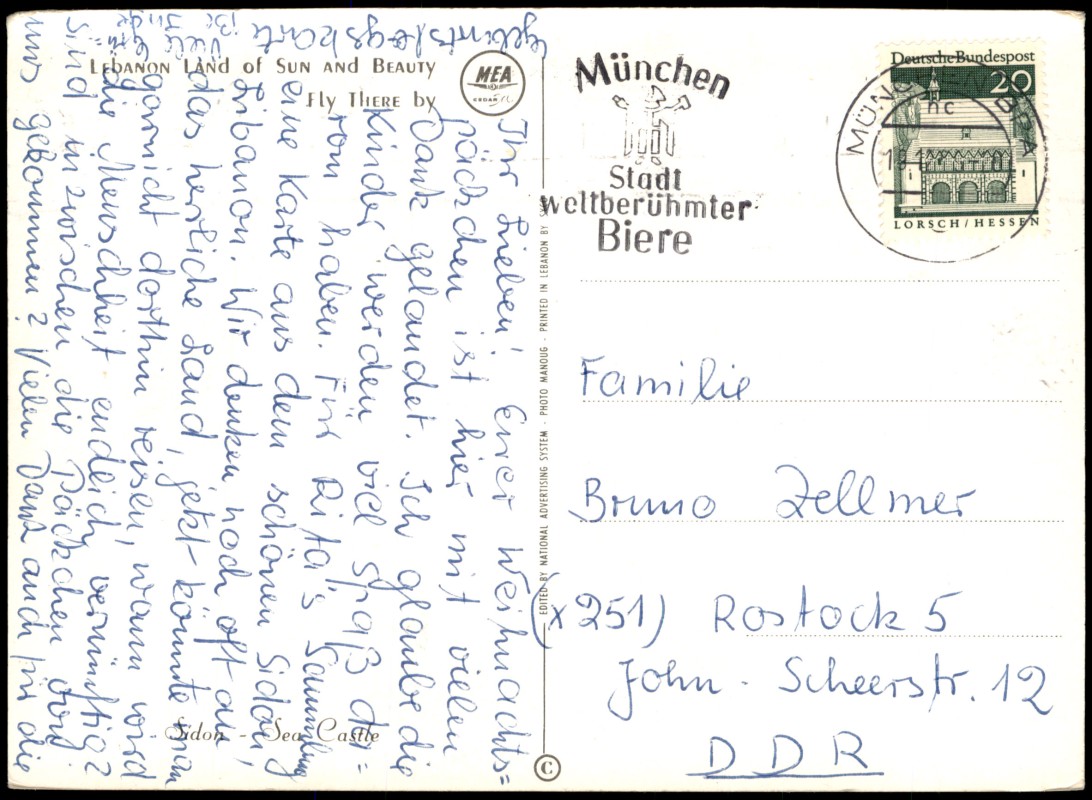 LEBANON LAND OF SUN AND BEAUTY
FLY THERE by
MEA
Ihr Lieben! Euer Weihnachts=
päckchen ist hier mit vielen
Dank gelandet. Ich glaube die
Kinder werden viel Spaß da=
ran haben. Für Rita's Sammlung
eine Karte aus dem schönen Sidon,
Libanon. Wir denken noch oft an
das herrliche Land, jetzt könnte man
garnicht dorthin reisen, wann wird
die Menschheit endlich vernünftig?
Sind inzwischen die Päckchen von
uns gekommen? Vielen Dank auch für die
Geburtstagskarte
Viele
Sidon - Sea Castle
EDITED BY NATIONAL ADVERTISING SYSTEM - PHOTO MANOUG - PRINTED IN LEBANON BY
©
München
Stadt
weltberühmter
Biere
Deutsche Bundespost
20
LORSCH / HESSEN
Familie
Bruno Zellmer
(x251) Rostock 5
John-Scheerstr. 12
DDR